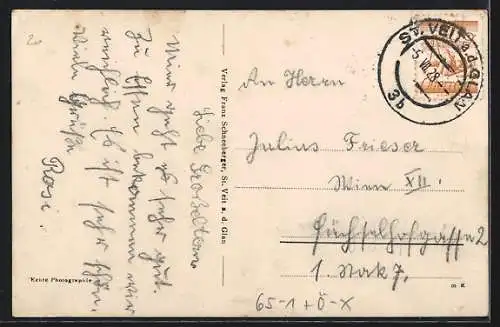 20
Liebe Großeltern
Mir geht es sehr gut.
Zu Essen bekommen wir
reichlich. Es ist sehr schön.
Viele Grüße
Rosi.
Echte Photographie
Verlag Franz Schneeberger, St. Veit a. d. Glan
ST. VEIT a.d. GLAN
-5.VII.28.-
3b
An Herrn
Julius Frieser
Wien XII.
Füchselhofgasse 2
1. Stock 7.
65-1+Ö-X